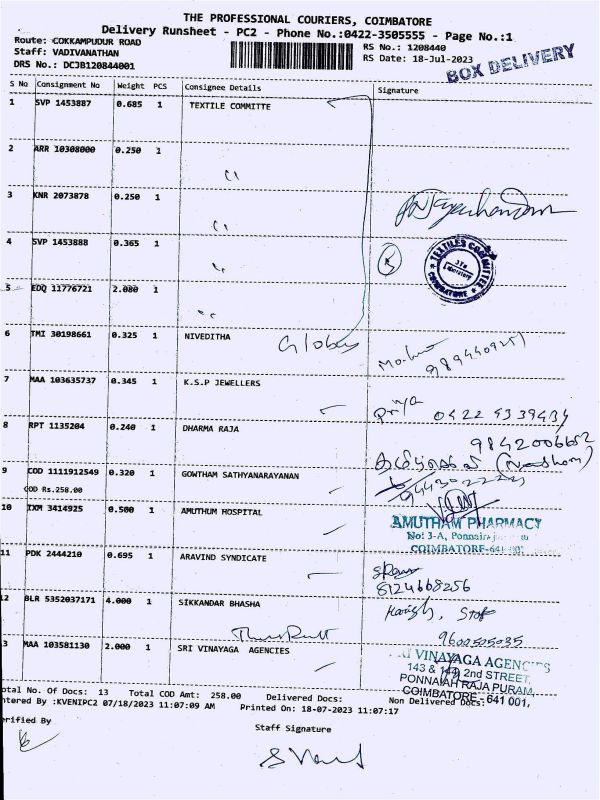 THE PROFESSIONAL COURIERS, COIMBATORE
Delivery Runsheet - PC2 - Phone No.:0422-3505555 - Page No.:1
Route: COKKAMPUDUR ROAD
RS No.: 1208440
Staff: VADIVANATHAN
RS Date: 18-Jul-2023
DRS No.: DCJB120844001
BOX DELIVERY
S No Consignment No Weight PCS Consignee Details Signature
1 SVP 1453887 0.685 1 TEXTILE COMMITTE
2 ARR 10308000 0.250 1
3 KNR 2073878 0.250 1
4 SVP 1453888 0.365 1
TEXTILES COMMITTEE
COIMBATORE
5 EDQ 11776721 2.080 1
6 TMI 30198661 0.325 1 NIVEDITHA
7 MAA 103635737 0.345 1 K.S.P JEWELLERS
Priya 0422 4339434
8 RPT 1135204 0.240 1 DHARMA RAJA
9842006652
9 COD 1111912549 0.320 1 GOWTHAM SATHYANARAYANAN
COD Rs.258.00
10 IXM 3414925 0.500 1 AMUTHUM HOSPITAL
AMUTHAM PHARMACY
No: 3-A,
COIMBATORE-641
11 PDK 2444210 0.695 1 ARAVIND SYNDICATE
8124668256
12 BLR 5352037171 4.000 1 SIKKANDAR BHASHA
9600505035
13 MAA 103581130 2.000 1 SRI VINAYAGA AGENCIES
SRI VINAYAGA AGENCIES
143 & 2nd STREET,
PONNAIAH RAJA PURAM,
COIMBATORE - 641 001.
Total No. Of Docs: 13 Total COD Amt: 258.00 Delivered Docs: Non Delivered Docs:
Entered By :KVENIPC2 07/18/2023 11:07:09 AM Printed On: 18-07-2023 11:07:17
Verified By
Staff Signature